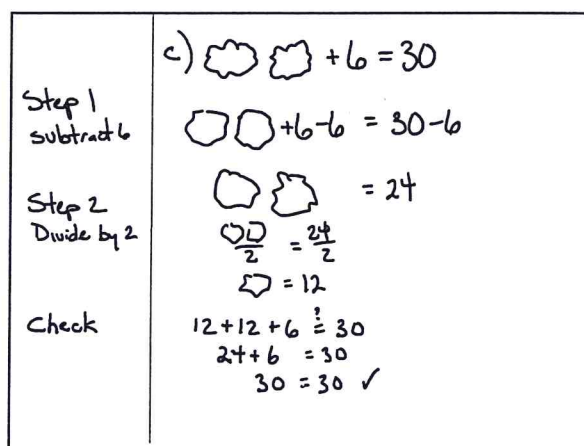 c) + 6 = 30
Step 1
subtract 6
+6-6 = 30-6
= 24
Step 2
Divide by 2
2 = 24/2
= 12
Check
12+12+6 ?= 30
24+6 = 30
30 = 30 ✓